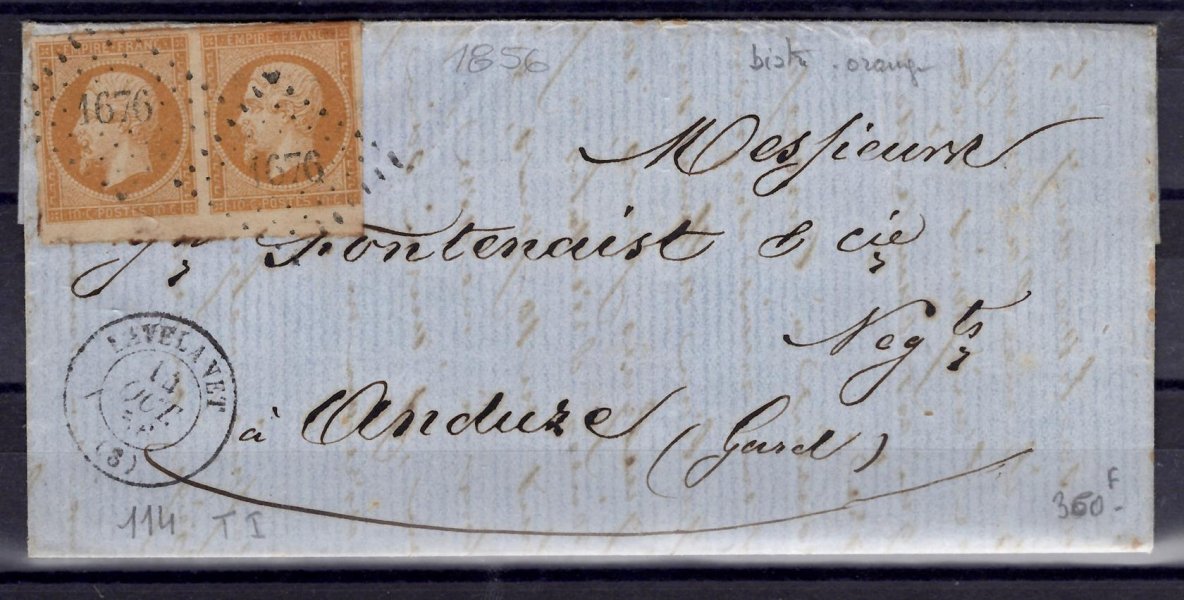 EMPIRE FRANC.
EMPIRE FRANC.
1676
1676
10.C. POSTES 10.C.
10.C. POSTES 10.C.
1856
bistre orange
Messieurs
Fontenaist & cie
Negts
à Anduze (Gard)
LAVELANET
OCT.
(8)
114 T I
360 F